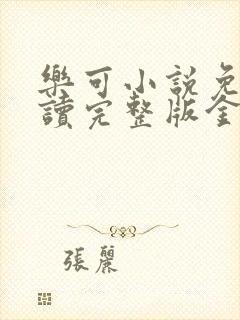 樂可小說免
讀完整版全
張麗